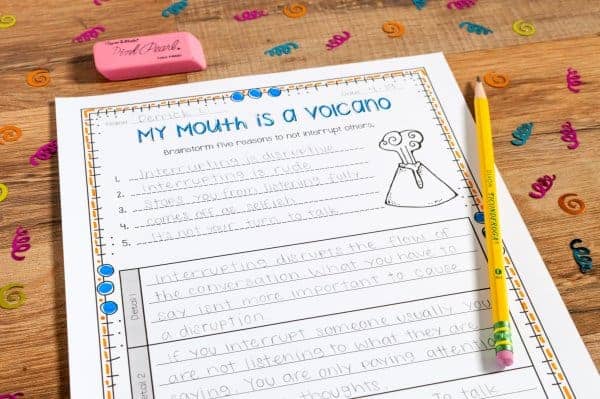 Pink Pearl
Name: Derrick
Date: 4-19
MY MOUTH IS A VOLCANO
Brainstorm five reasons to not interrupt others.
1. Interrupting is disruptive
2. Interrupting is rude
3. stops you from listening fully
4. comes off as selfish
5. It's not your turn to talk
Detail 1
Interrupting disrupts the flow of
the conversation. What you have to
say isnt more important to cause
a disruption.
Detail 2
if you interrupt someone usually you
are not listening to what they are
saying. You are only paying attention
thoughts.
to talk
TICONDEROGA